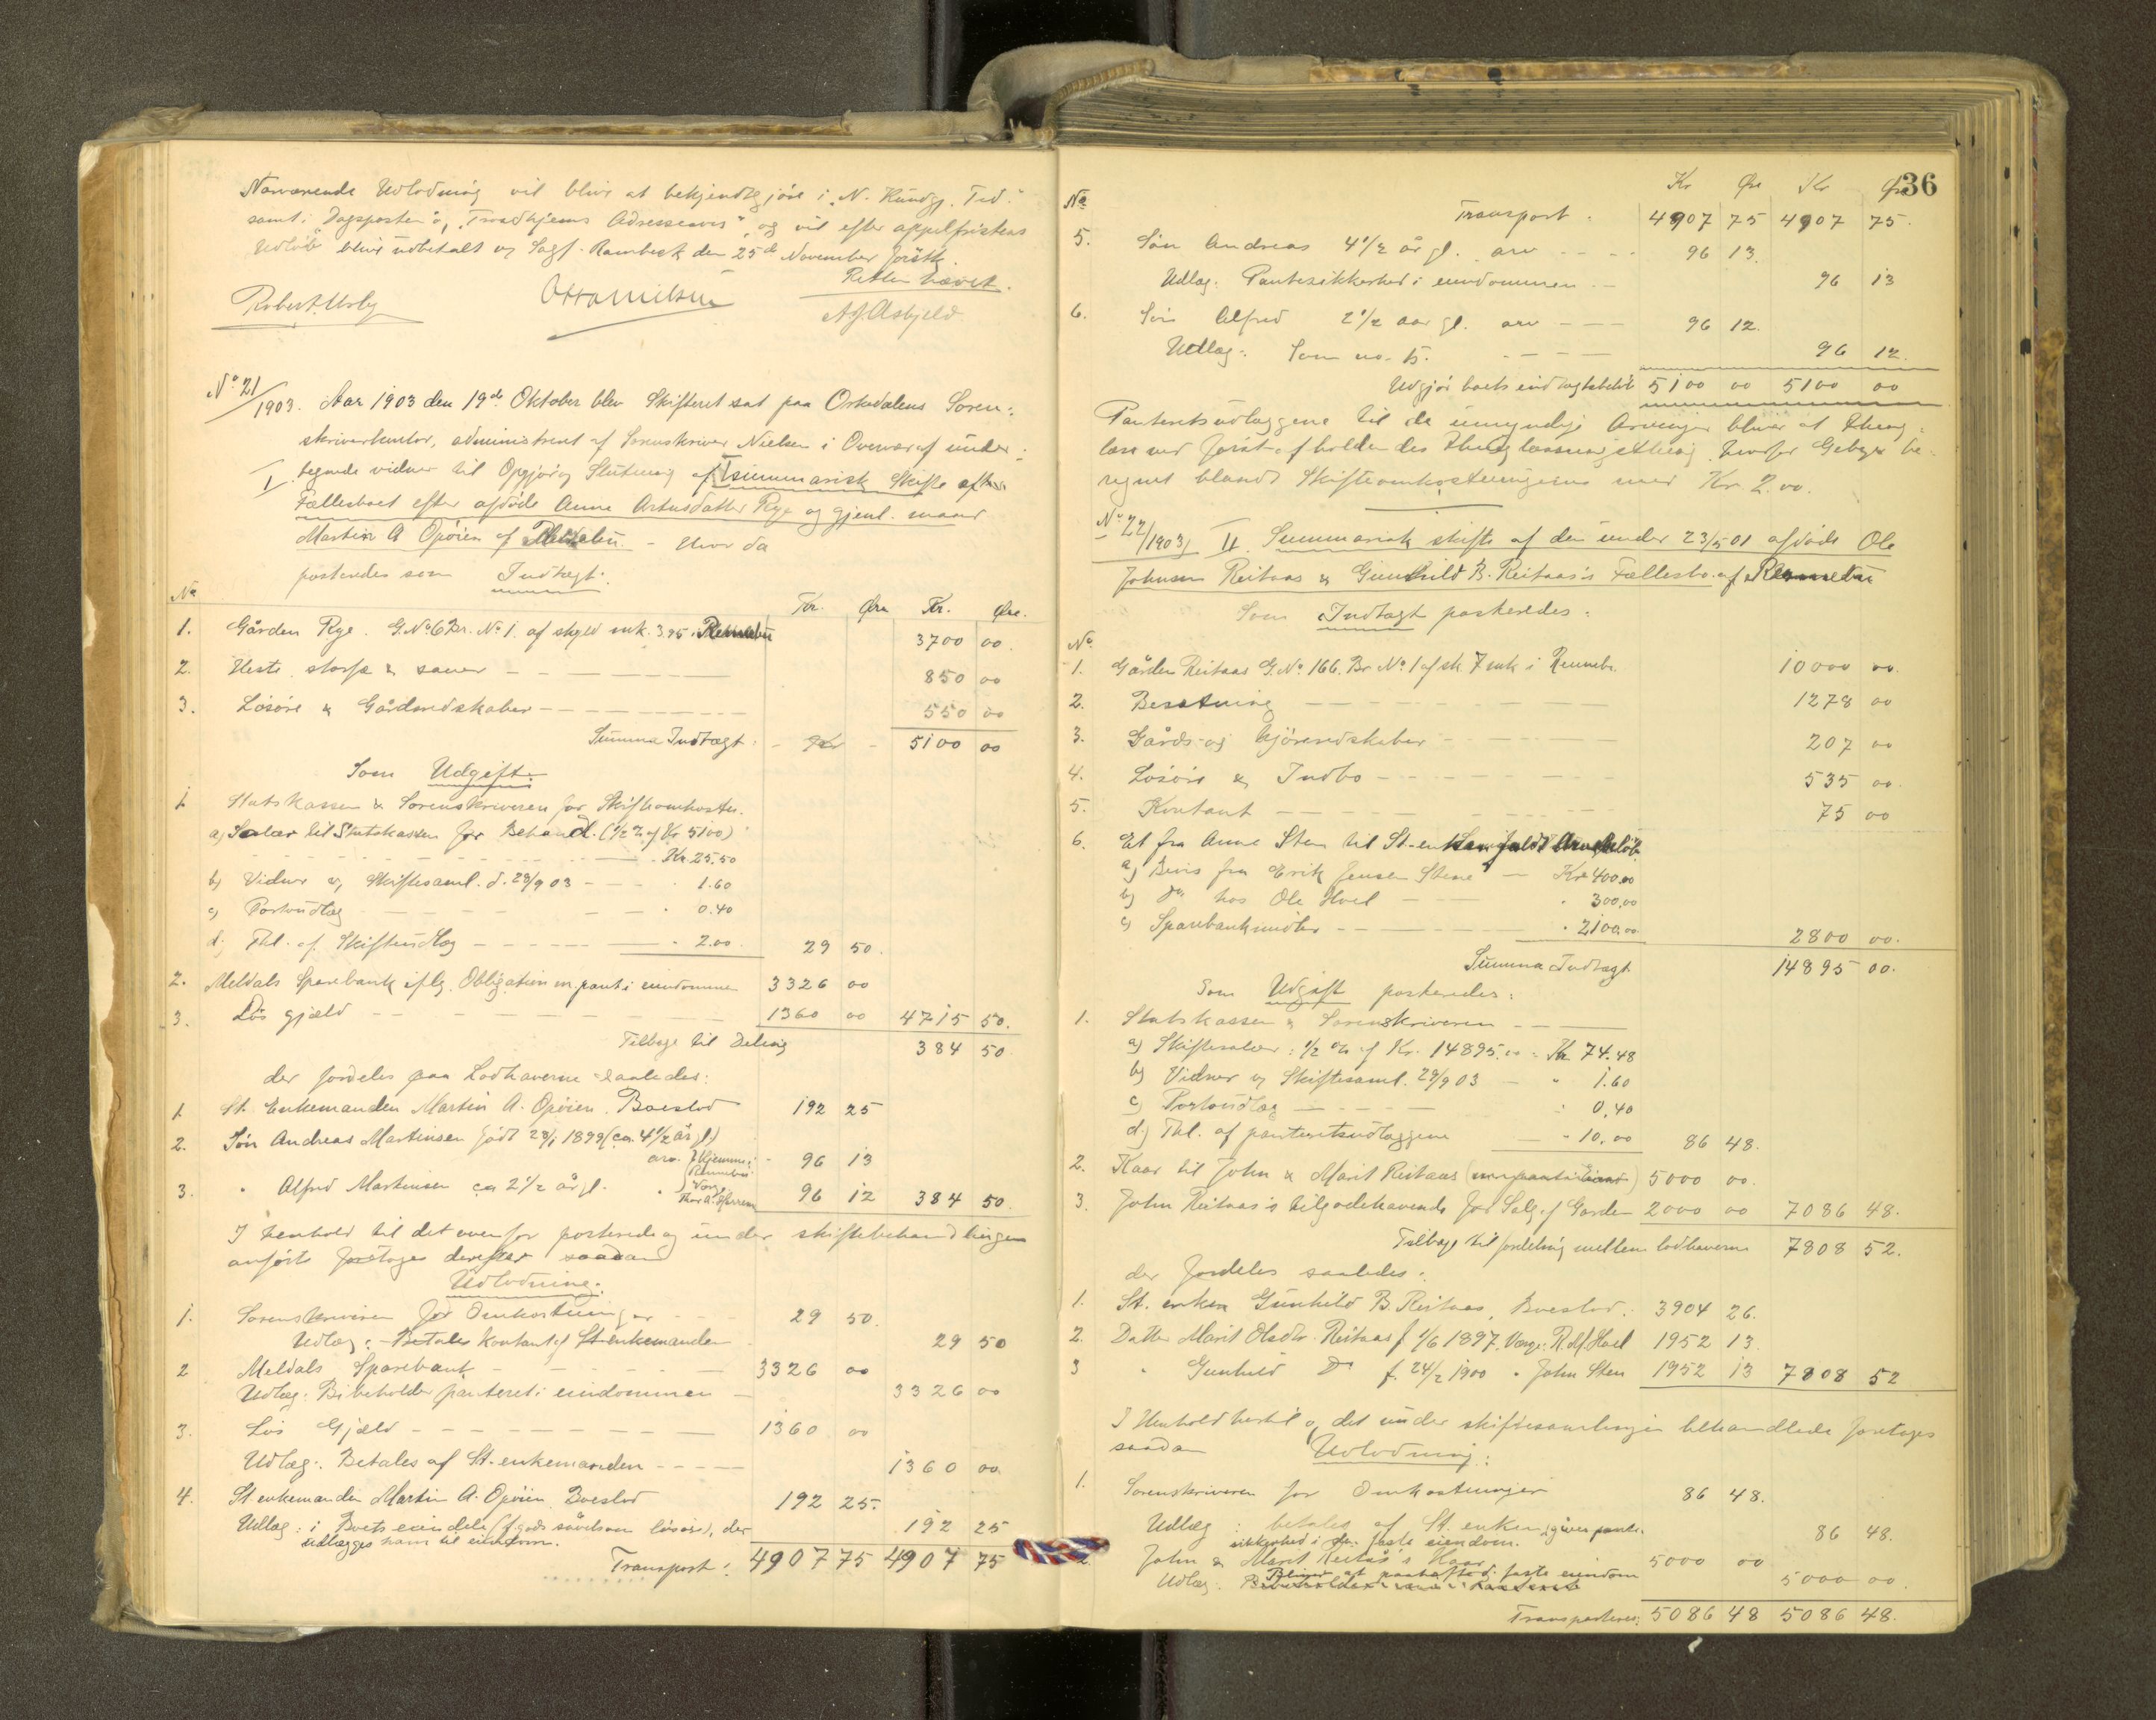 Nærværende Udlodning vil blive at bekjendtgjøre i „N. Kundgj. Tid.“
samt i „Dagsposten“ og „Trondhjems Adresseavis“ og vil efter appelfristens
Udløb blive udbetalt og Sagf. Rambech den 25de November førstk.
Retten hævet.
Robert Usly Otto Nielsen A.J. Asbjeld
No 21/1903. Aar 1903 den 19de Oktober blev Skifteret sat paa Orkedalens Soren-
skriverkontor, administreret af Sorenskriver Nielsen i Overvær af under-
tegnede vidner til Opgjør og Slutning af
I summarisk Skifte efter
Fællesboet efter afdøde Anne Arntsdatter Rye og gjenl. mand
Martin A Opøien af Rennebu. - Hvor da
posteredes som Indtægt:
No Kr. Øre Kr. Øre.
1. Gården Rye. G.No 6 Br. No 1. af skyld mk. 3.95 i Rennebu 3700 00.
2. Heste, storfæ & sauer 850 00
3. Løsøre & Gårdsredskaber 550 00
Summa Indtægt: Kr 5100 00
Som Udgift:
1. Statskassen & Sorenskriveren for Skifteomkostn.
a) Salær til Statskassen for Behandl. (1/2 % af Kr 5100)
Kr. 25.50
b) Vidner og Skiftesaml. d. 29/9 03 1.60
c) Portoudlæg 0.40
d) Thl. af Skifteudlæg 2.00. 29 50.
2. Meldals Sparebank iflg. Obligation m. pant i eiendommen 3326 00
3. Løs gjæld 1360 00 4715 50.
Tilbage til Deling 384 50.
der fordeles paa Lodhaverne saaledes:
1. St. Enkemanden Martin A. Opøien, Boeslod 192 25
2. Søn Andreas Martinsen født 28/1 1899 (ca. 4 1/2 år gl.)
arv. hjemme i Rennebu. 96 13
3. " Alfred Martinsen ca 2 1/2 år gl. " Værge 96 12 384 50.
I Henhold til det ovenfor posterede og under skiftebehandlingen
anførte foretages derefter saadan
Udlodning:
1. Sorenskriveren for Omkostninger 29 50.
Udlæg: Betales kontant af St enkemanden 29 50
2 Meldals Sparebank 3326 00
Udlæg: Bibeholder panteret i eiendommen 3326 00
3. Løs Gjæld 1360 00
Udlæg: Betales af St. enkemanden 1360 00.
4. St enkemanden Martin A. Opøien Boeslod 192 25.
Udlæg: i Boets eiendele (f. gods såvelsom løsøre), der 192 25
udlægges ham til eiendom.
Transport: 4907 75 4907 75
36
No Kr Øre Kr Øre
Transport: 4907 75 4907 75.
5. Søn Andreas 4 1/2 år gl. arv 96 13.
Udlæg: Pantesikkerhed i eiendommen 96 13
6. Søn Alfred 2 1/2 aar gl. arv 96 12.
Udlæg: Som no. 5. 96 12.
Udgjør boets indtægtsbeløb 5100 00 5100 00
Panteretsudlæggene til de umyndige Arvinger bliver at thing-
læse ved først afholdendes thinglæsningsthing hvorfor Gebyr be-
regnet blandt Skifteomkostningerne med Kr. 2.00.
No 22/1903 II. Summarisk skifte af den under 23/5 01 afdøde Ole
Johnsen Reitaas & Gunhild B. Reitaas's Fællesbo af Rennebu
Som Indtægt posteredes:
No
1. Gården Reitaas G.No 166. Br No 1 af sk. 7 mk i Rennebu. 10000 00.
2. Besætning 1278 00
3. Gårds- og kjøreredskaber 207 00
4. Løsøre & Indbo 535 00.
5. Kontant 75 00
6. Et fra Anne Sten til St.-enken
a) Bevis fra Erik Jensen Stene Kr 400.00
b) Do hos Ole Hoel 300.00
c) Sparebankmidler 2100.00 2800 00.
Summa Indtægt 14895 00.
Som Udgift posteredes:
1. Statskassen & Sorenskriveren
a) Skiftesalær: 1/2 % af Kr. 14895.00 = Kr. 74.48
b) Vidner og Skiftesaml. 29/9 03 " 1.60
c) Portoudlæg 0.40
d.) Thl. af panteretsudlæggene 10.00 86 48.
2. Kaar til John & Marit Reitaas 5000 00.
3. John Reitaas's tilgodehavende for Salg af Gården 2000 00 7086 48.
Tilbage til fordeling mellem lodhaverne 7808 52.
der fordeles saaledes:
1. St. enken Gunhild B. Reitaas, Boeslod. 3904 26.
2. Datter Marit Olsdtr. Reitaas f 1/6 1897. Værge: R.M. Hoel 1952 13.
3 " Gunhild Do f. 24/2 1900 " John Sten 1952 13 7808 52
I Henhold hertil og det under skiftesamlingen behandlede foretages
saadan Udlodning:
1. Sorenskriveren for Omkostninger 86 48.
Udlæg: betales af St. enken, giver pante- 86 48.
sikkerhed i den faste eiendom.
2. John & Marit Reitås's Kaar 5000 00
Udlæg: Bliver at paahefte d. faste eiendom 5000 00.
Transporteres: 5086 48 5086 48.